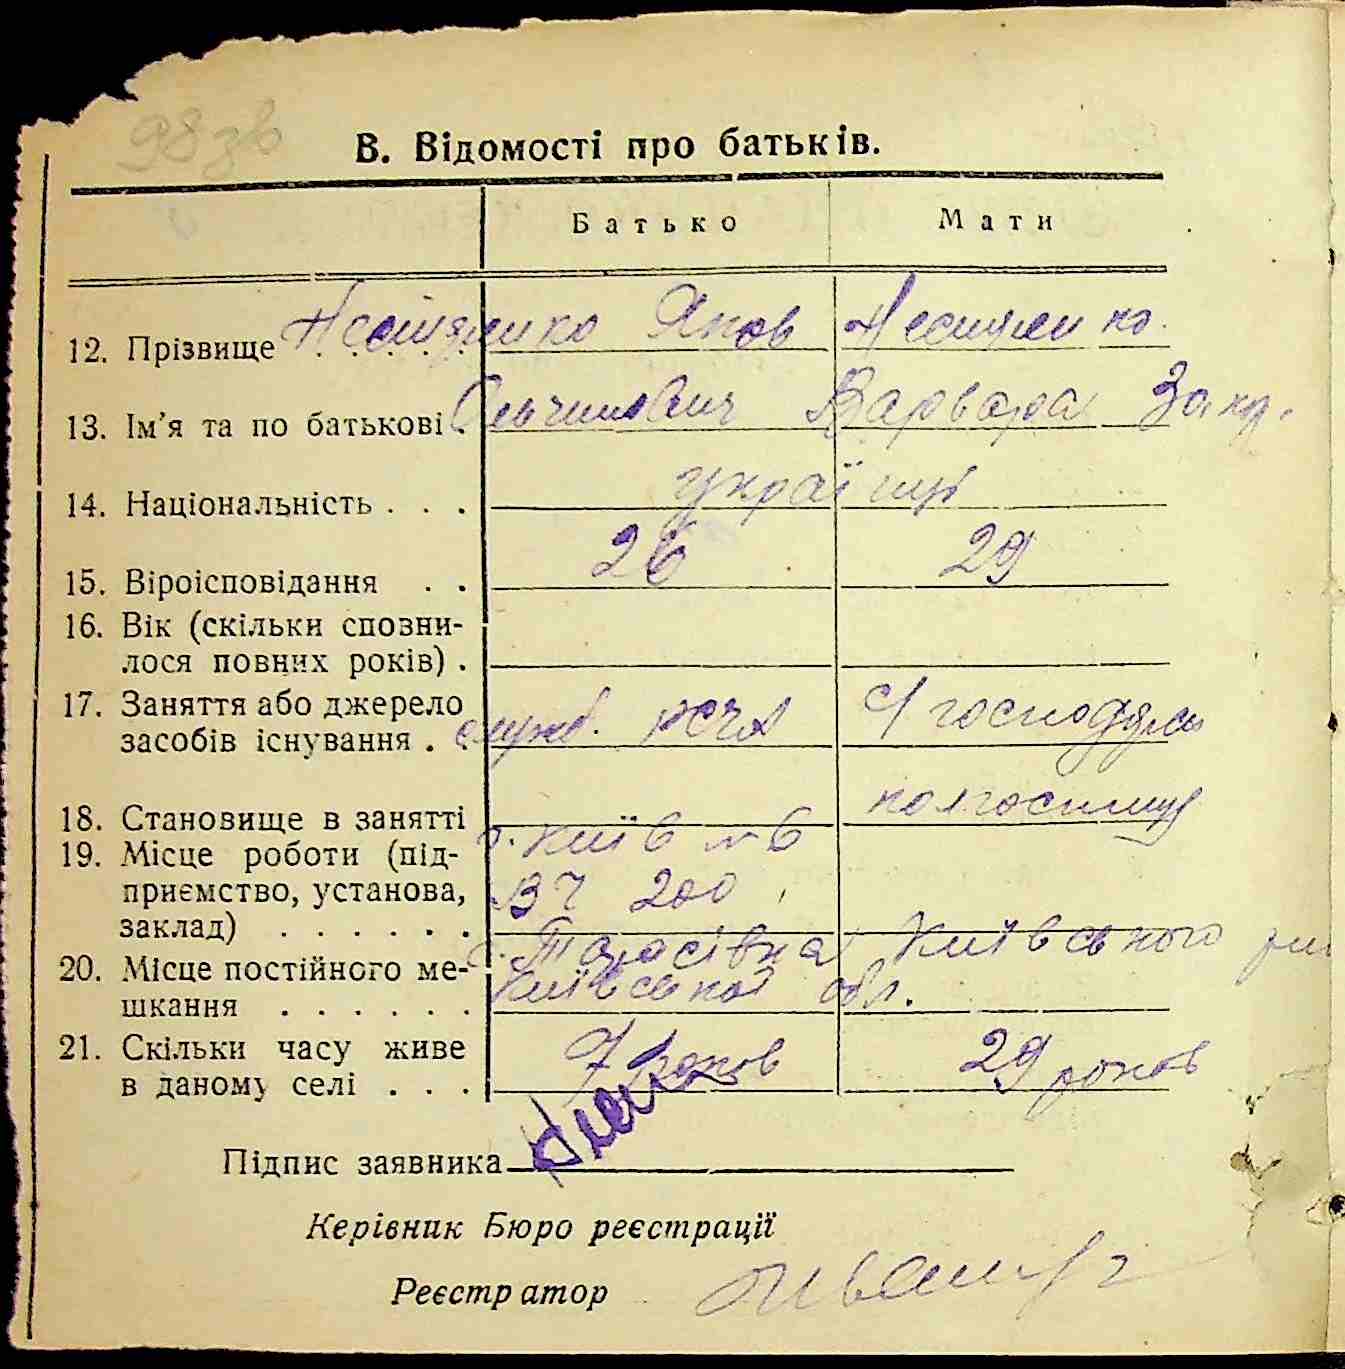 98зв
В. Відомості про батьків.
Батько Мати
12. Прізвище . . . . . Нестеренко Яков Нестеренко
13. Ім'я та по батькові . Варвара Зах.
14. Національність . . . українці
15. Віроісповідання . . 26 29
16. Вік (скільки сповни-
лося повних років) .
17. Заняття або джерело
засобів існування . . служб. РСЧА с/господарка
18. Становище в занятті колгоспниця
19. Місце роботи (під- г. Київ №6
приємство, установа, ВЧ 200
заклад) . . . . . .
20. Місце постійного ме- с. Тарасівка Київського
шкання . . . . . . Київської обл.
21. Скільки часу живе
в даному селі . . . 7 років 29 років
Підпис заявника
Керівник Бюро реєстрації
Реєстратор